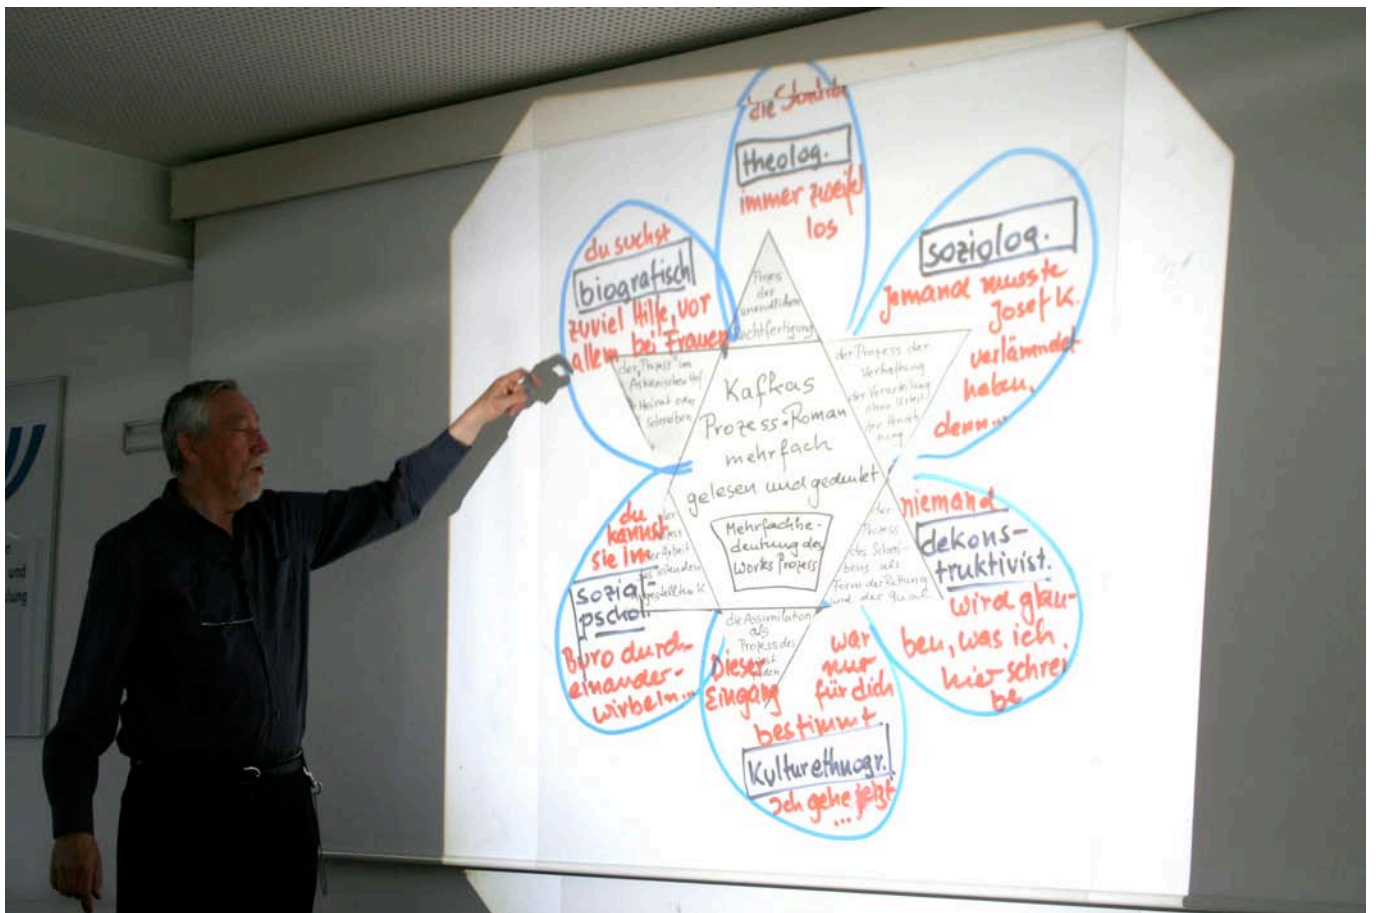 die
theolog.
immer zweifel
los
Prozess
der
unendlichen
Rechtfertigung
soziolog.
Jemand musste
Josef K.
verlämmdet
haben,
denn...
der Prozess der
Verhaftung
der Verurteilung
ohne Urteil
der Hinrich
tung
du suchst
biografisch
zuviel Hilfe, vor
allem bei Frauen
der "Prozess" im
Askanischen Hof
Heirat oder
Schreiben
Kafkas
Prozess-Roman
mehrfach
gelesen und gedeutet
Mehrfachbe-
deutung des
Works Prozess
niemand
dekons-
truktivist.
wird glau-
ben, was ich
hier schrei
be
der
Prozess
des Schrei-
bens als
Form der Rettung
und der Qual
du
kannst
sie im
sozial-
pschol.
Büro durch-
einander-
wirbeln...
der
Arbeit
des leitenden
Angestellten K.
die Assimilation
als
Prozess des
Dieser
Eingang
war
nur
für dich
bestimmt
Kulturethnogr.
Ich gehe jetzt
...
und
lung